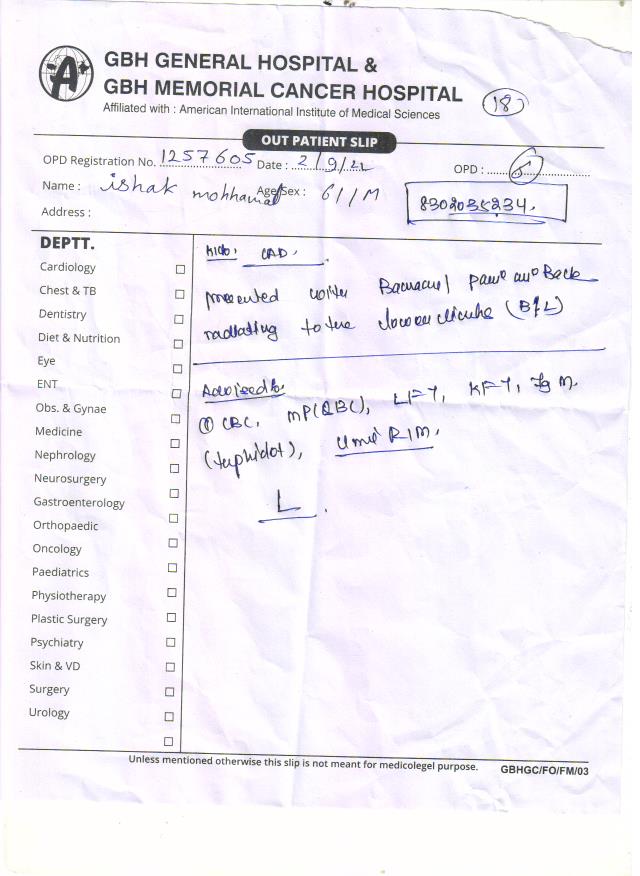 GBH GENERAL HOSPITAL &
GBH MEMORIAL CANCER HOSPITAL
Affiliated with : American International Institute of Medical Sciences
18
OUT PATIENT SLIP
OPD Registration No. 1257605 Date : 2/9/22 OPD : 6
Name : ishak mohhamad Age/Sex : 61/M
8302035234.
Address :
DEPTT.
Cardiology
Chest & TB
Dentistry
Diet & Nutrition
Eye
ENT
Obs. & Gynae
Medicine
Nephrology
Neurosurgery
Gastroenterology
Orthopaedic
Oncology
Paediatrics
Physiotherapy
Plastic Surgery
Psychiatry
Skin & VD
Surgery
Urology
CAD.
presented with Back
radiating to the (B/L)
Advised
① CBC, MP(QBC), LFT, KFT, IgM.
(typhidot), Urine R/M.
Unless mentioned otherwise this slip is not meant for medicolegel purpose.
GBHGC/FO/FM/03